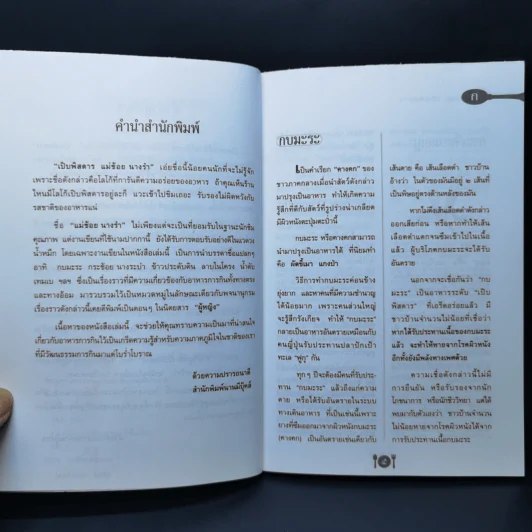 คำนำสำนักพิมพ์
"เปิบพิสดาร แม่ช้อย นางรำ" เอ่ยชื่อนี้น้อยคนนักที่จะไม่รู้จัก
เพราะชื่อดังกล่าวคือโลโก้ที่การันตีความอร่อยของอาหาร ถ้าคุณเดินร้าน
ไหนมีโลโก้เปิบพิสดารอยู่ละก็ แวะเข้าไปชิมเถอะ รับรองไม่ผิดหวังกับ
รสชาติของอาหารแน่
ชื่อ "แม่ช้อย นางรำ" ไม่เพียงแต่จะเป็นที่ยอมรับในฐานะนักชิม
คุณภาพ แต่งานเขียนที่ใช้นามปากกานี้ ยังได้รับการตอบรับอย่างดีในแวดวง
น้ำหมึก โดยเฉพาะงานเขียนในหนังสือเล่มนี้ เป็นการนำบรรดาชื่อแปลกๆ
อาทิ กบมะระ กระช้อย นางระบำ ข้าวประดับดิน ลาบในโครง น้ำตับ
เทมเบ ฯลฯ ซึ่งเป็นเรื่องราวที่มีความเกี่ยวข้องกับอาหารการกินทั้งทางตรง
และทางอ้อม มารวบรวมไว้เป็นหมวดหมู่ในลักษณะเดียวกับพจนานุกรม
เรื่องราวดังกล่าวนี้เคยตีพิมพ์เป็นตอนๆ ในนิตยสาร "ผู้หญิง"
เนื้อหาของหนังสือเล่มนี้ จะช่วยให้คุณทราบความเป็นมาที่น่าสนใจ
เกี่ยวกับอาหารการกินไว้เป็นเกร็ดความรู้สำหรับความภาคภูมิใจในชาติของเรา
ที่มีวัฒนธรรมการกินมาแต่โบร่ำโบราณ
ด้วยความปรารถนาดี
สำนักพิมพ์นานมีบุ๊คส์
ก
กบมะระ
เป็นคำเรียก "คางคก" ของ
ชาวภาคกลางเมื่อนำสัตว์ดังกล่าว
มาปรุงเป็นอาหาร ทำให้เกิดความ
รู้สึกที่ดีกับสัตว์ที่รูปร่างน่าเกลียด
มีผิวหนังตะปุ่มตะป่ำนี้
กบมะระ หรือคางคกสามารถ
นำมาปรุงเป็นอาหารได้ ที่นิยมทำ
คือ ผัดขี้เมา แกงป่า
วิธีการทำกบมะระค่อนข้าง
ยุ่งยาก และหาคนที่มีความชำนาญ
ได้น้อยมาก เพราะคนส่วนใหญ่
จะรู้สึกรังเกียจ ทำให้ "กบมะระ"
กลายเป็นอาหารอันตรายเหมือนกับ
คนญี่ปุ่นรับประทานปลาปักเป้า
ทะเล "ฟูกุ" กัน
ทุกๆ ปีจะต้องมีคนที่รับประ
ทาน "กบมะระ" แล้วถึงแก่ความ
ตาย หรือได้รับอันตรายในระบบ
ทางเดินอาหาร ที่เป็นเช่นนี้เพราะ
ยางที่ซึมออกมาจากผิวหนังกบมะระ
(คางคก) เป็นอันตรายเช่นเดียวกับ
เส้นตาย คือ เส้นเลือดดำ ชาวบ้าน
อ้างว่า ในตัวของมันมีอยู่ ๒ เส้นที่
เป็นพิษอยู่ตรงด้านหลังของมัน
หากไม่ดึงเส้นเลือดดำดังกล่าว
ออกเสียก่อน หรือหากทำให้เส้น
เลือดดำแตกจนซึมเข้าไปในเนื้อ
แล้ว ผู้บริโภคกบมะระจะได้รับ
อันตราย
นอกจากจะเชื่อกันว่า "กบ
มะระ" เป็นอาหารระดับ "เปิบ
พิสดาร" ที่เอร็ดอร่อยแล้ว มี
ชาวบ้านจำนวนไม่น้อยที่เชื่อว่า
หากได้รับประทานเนื้อของกบมะระ
แล้ว จะทำให้หายจากโรคผิวหนัง
อีกทั้งยังมีพลังทางเพศด้วย
ความเชื่อดังกล่าวนี้ไม่มี
การยืนยัน หรือรับรองจากนัก
โภชนาการ หรือนักชีววิทยา แต่ได้
พบมากับตัวเองว่า ชาวบ้านจำนวน
ไม่น้อยหายจากโรคผิวหนังได้จาก
การรับประทานเนื้อกบมะระ